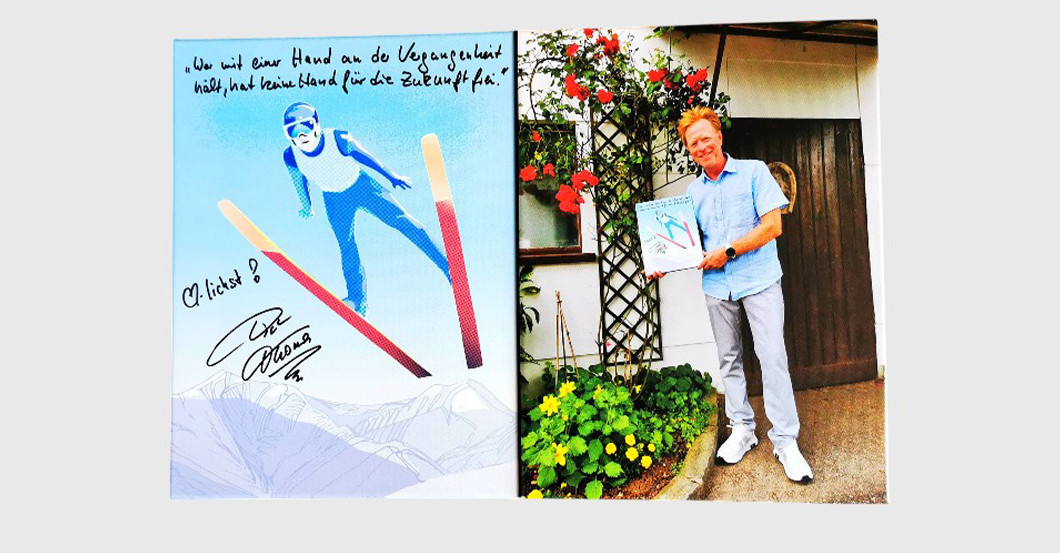 „Wer mit einer Hand an der Vergangenheit
hält, hat keine Hand für die Zukunft frei."
♡-lichst !
Thoma